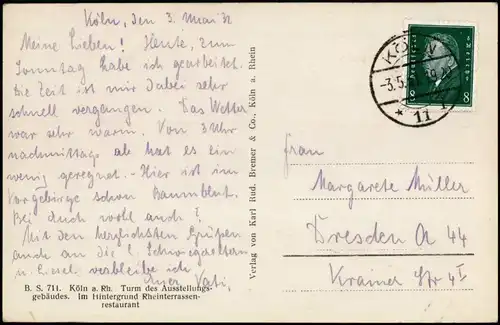 Köln, den 3. Mai 31
Meine Lieben! Heute, zum
Sonntag habe ich gearbeitet.
Die Zeit ist mir dabei sehr
schnell vergangen. Das Wetter
war sehr warm. Von 3 Uhr
nachmittags ab hat es ein
wenig geregnet. Hier ist im
Vorgebirge schon Baumblüt.
Bei Euch wohl auch?
Mit den herzlichsten Grüßen
auch an die l. Schwiegereltern
u. Liesel verbleibe ich
Euer Vati.
B. S. 711. Köln a. Rh. Turm des Ausstellungs-
gebäudes. Im Hintergrund Rheinterrassen-
restaurant
Verlag von Karl Rud. Bremer & Co., Köln a. Rhein
KÖLN
-3.5.
* 11
8
Frau
Margarete Müller
Dresden A 44
Str 4 I